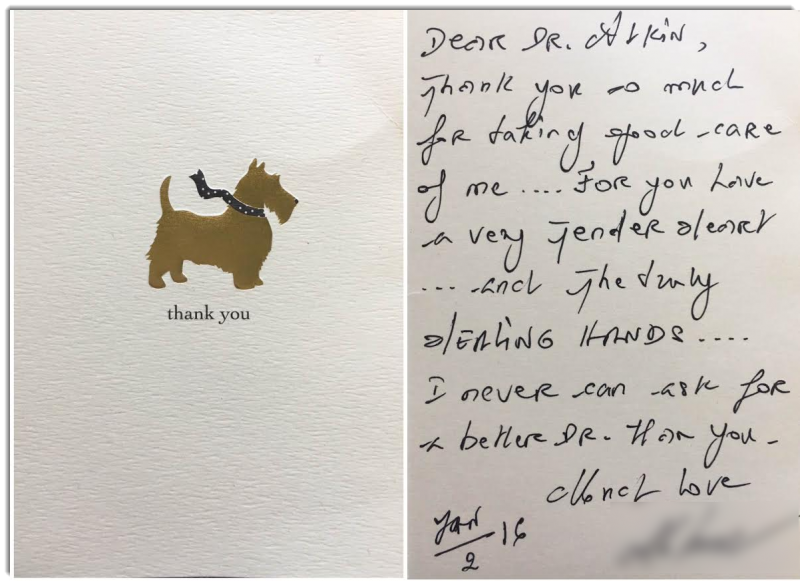 thank you
Dear DR. Atkin,
Thank you so much
for taking good care
of me .... For you have
a very Tender Heart
... and The truly
HEALING HANDS ....
I never can ask for
a better DR. than you -
Much Love
JAN
2 16